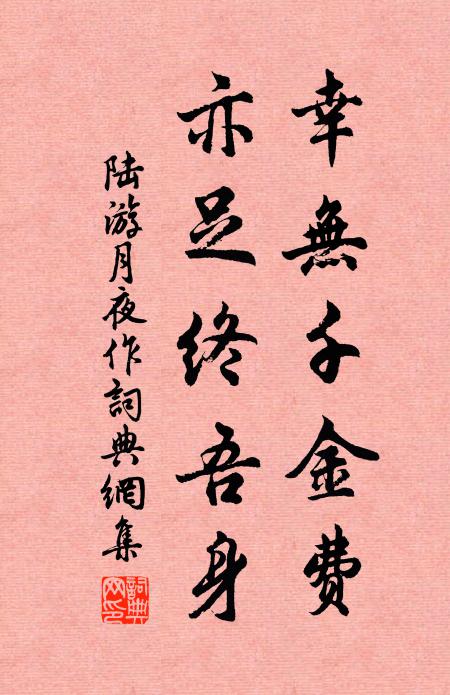 幸無千金費
亦足終吾身
陸游月夜作詞典網集
詞典網印